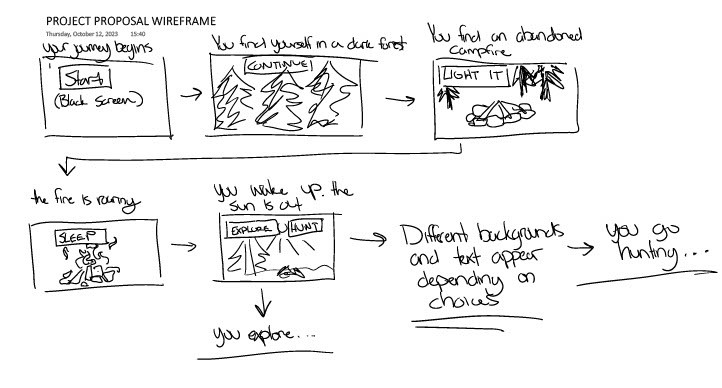 PROJECT PROPOSAL WIREFRAME
Thursday, October 12, 2023 15:40
your journey begins
Start
(Black Screen)
You find yourself in a dark forest
CONTINUE
You find an abandoned
campfire
LIGHT IT
the fire is roaring
SLEEP
you wake up. the
sun is out
EXPLORE
HUNT
Different backgrounds
and text appear
depending on
choices
you go
hunting...
you explore...